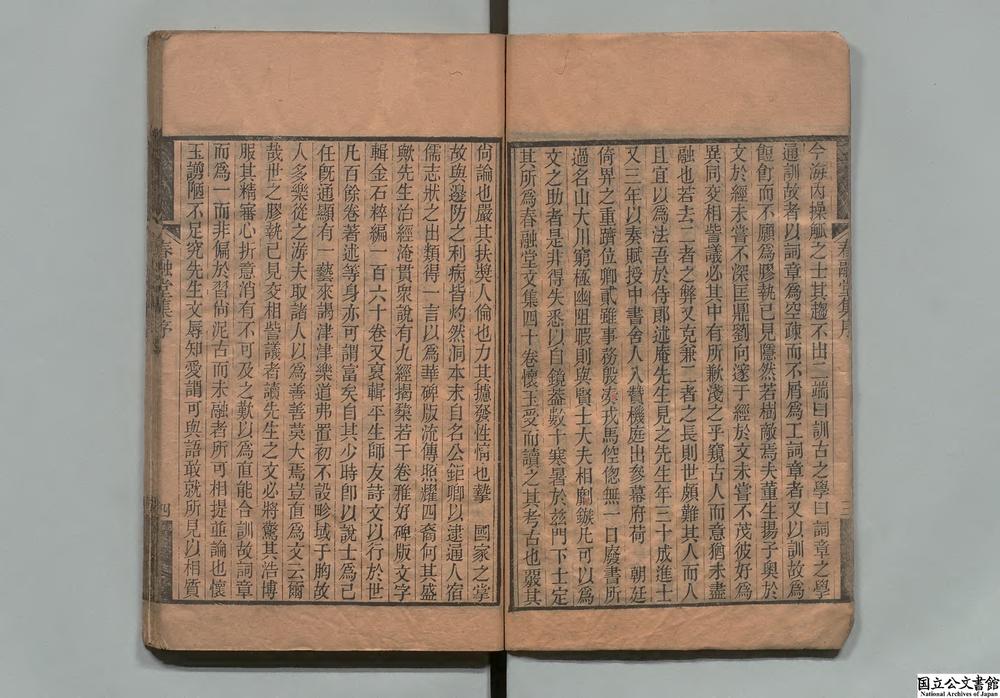 今海內操觚之士其趨不出二端曰訓古之學曰詞章之學
通訓故者以詞章爲空疎而不屑爲工詞章者又以訓故爲
餖飣而不願爲膠執己見隱然若樹敵焉夫董生揚子奧於
文於經未嘗不深匡鼎劉向邃于經於文未嘗不茂彼好爲
異同交相訾議必其中有所歉淺之乎窺古人而意猶未盡
融也若去二者之弊又克兼二者之長則世頗難其人而人
且宜以爲法吾於侍郞述庵先生見之先生年三十成進士
又三年以奏賦授中書舍人入贊機庭出參幕府荷 朝廷
倚畀之重躋位卿貳雖事務殷湊戎馬倥偬無一日廢書所
過名山大川窮極幽阻暇則與賢士大夫相劘鏃凡可以爲
文之助者是非得失悉以自鏡葢數十寒暑於兹門下士定
其所爲春融堂文集四十卷懷玉受而讀之其考古也嚴其
春融堂集序
尙論也嚴其扶奬人倫也力其攄發性情也摯 國家之掌
故與邊防之利病皆灼然洞本末自名公鉅卿以逮通人宿
儒志狀之出類得一言以爲華碑版流傳照耀四裔何其盛
歟先生治經淹貫衆說有九經揭櫫若干卷雅好碑版文字
輯金石粹編一百六十卷又裒輯平生師友詩文以行於世
凡百餘卷著述等身亦可謂富矣自其少時卽以說士爲己
任旣通顯有一藝來謁津津樂道弗置初不設畛域于胸故
人多樂從之游夫取諸人以爲善善莫大焉豈直爲文云爾
哉世之膠執已見交相訾議者讀先生之文必將驚其浩博
服其精審心折意消有不可及之歎以爲直能合訓故詞章
而爲一而非偏於習尙泥古而未融者所可相提並論也懷
玉謭陋不足究先生文辱知愛謂可與語敢就所見以相質
春融堂集序
四
国立公文書館
National Archives of Japan